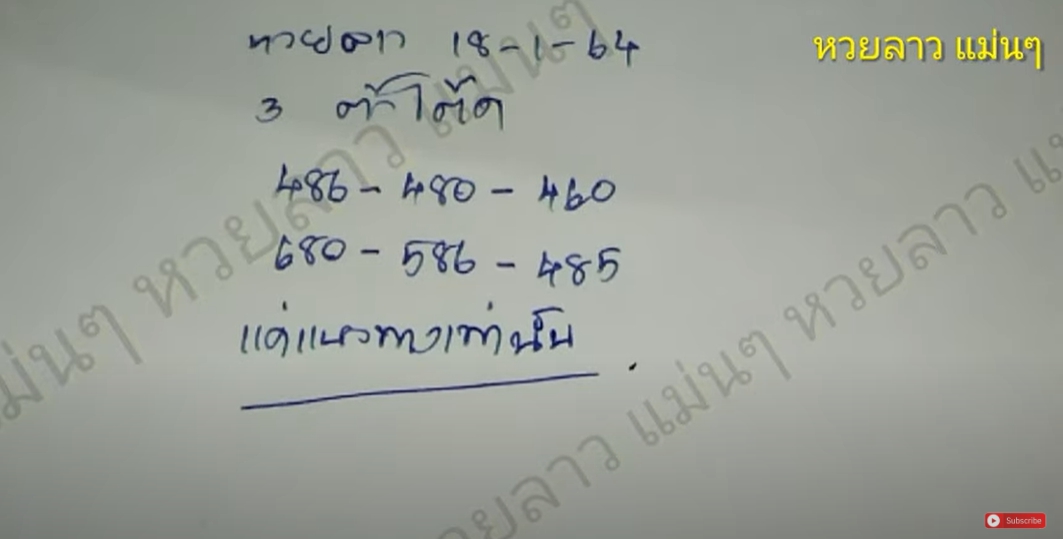 หวยลาว 18-1-64
หวยลาว แม่นๆ
3 ตัวโต๊ด
486 - 480 - 460
680 - 586 - 485
แค่แนวทางเท่านั้น
หวยลาว แม่นๆ
หวยลาว แม่นๆ
หวยลาว แม่นๆ
Subscribe